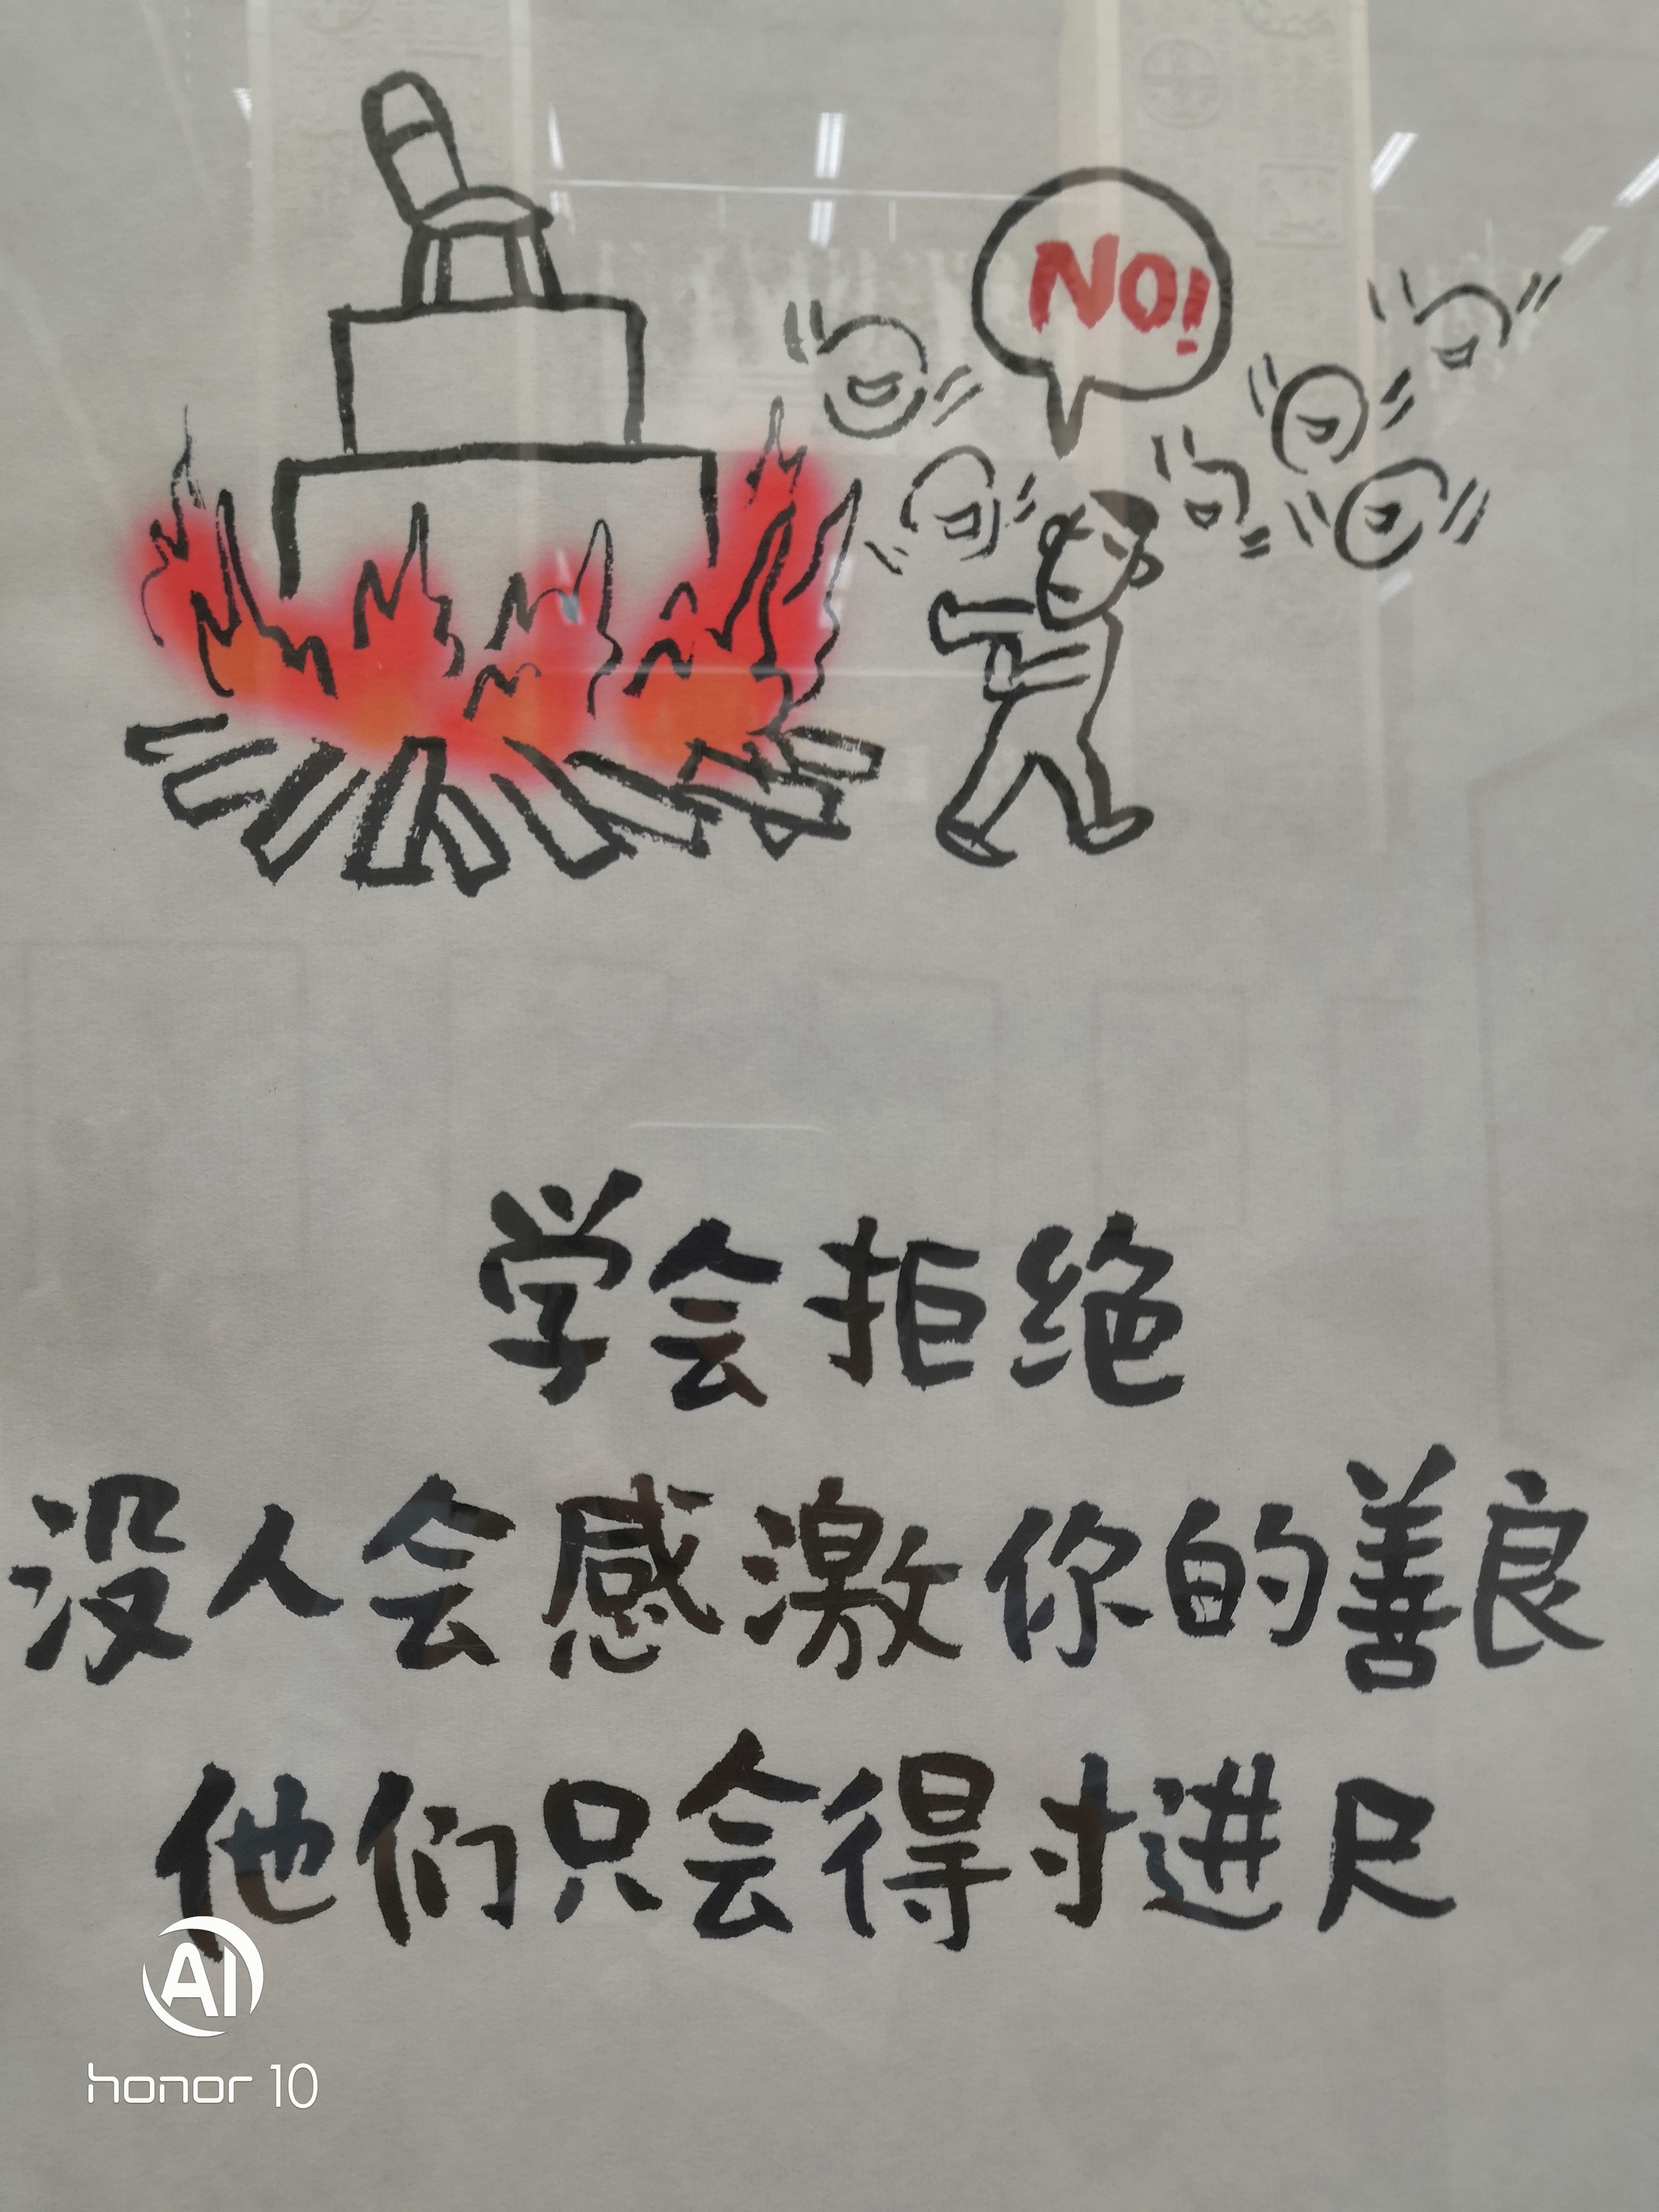 NO!
学会拒绝
没人会感激你的善良
他们只会得寸进尺
AI
honor 10